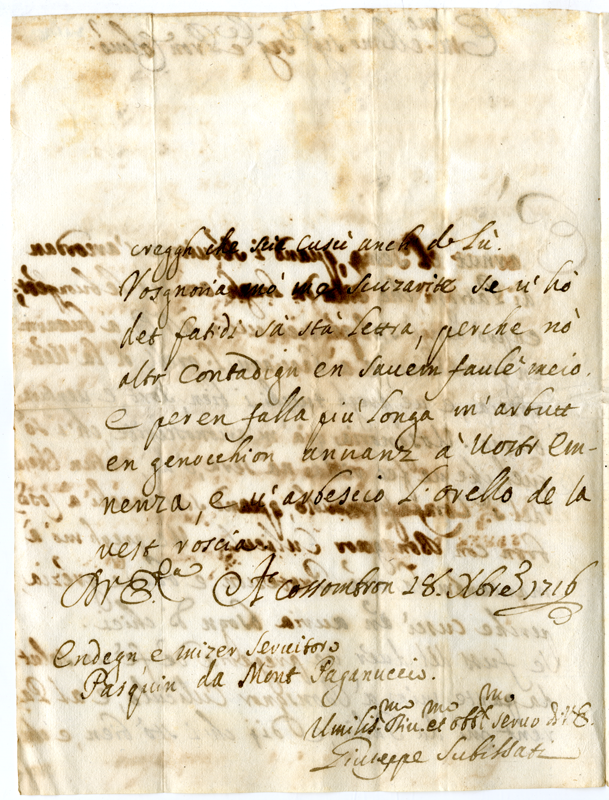 creggh che sia cusiù anch de Lù.
Vosgnoria mò me scuzarite se v'hò
det fatidi sà stà Lettra, perche nò
altr Contadign en savem faulè meio.
e per en falla più Longa m'arbutt
en genocchion annanz à Vostr Em-
nenza, e v'arbescio L'orello de la
vest roscia
Di V. Em.za A Cossombron 28. Xbre 1716
Endegn, e mizer Servitore
Pasquin da Mont Paganuccio.
Umilis.mo Div.mo et obb.mo servo di V.E.
Giuseppe Subissati